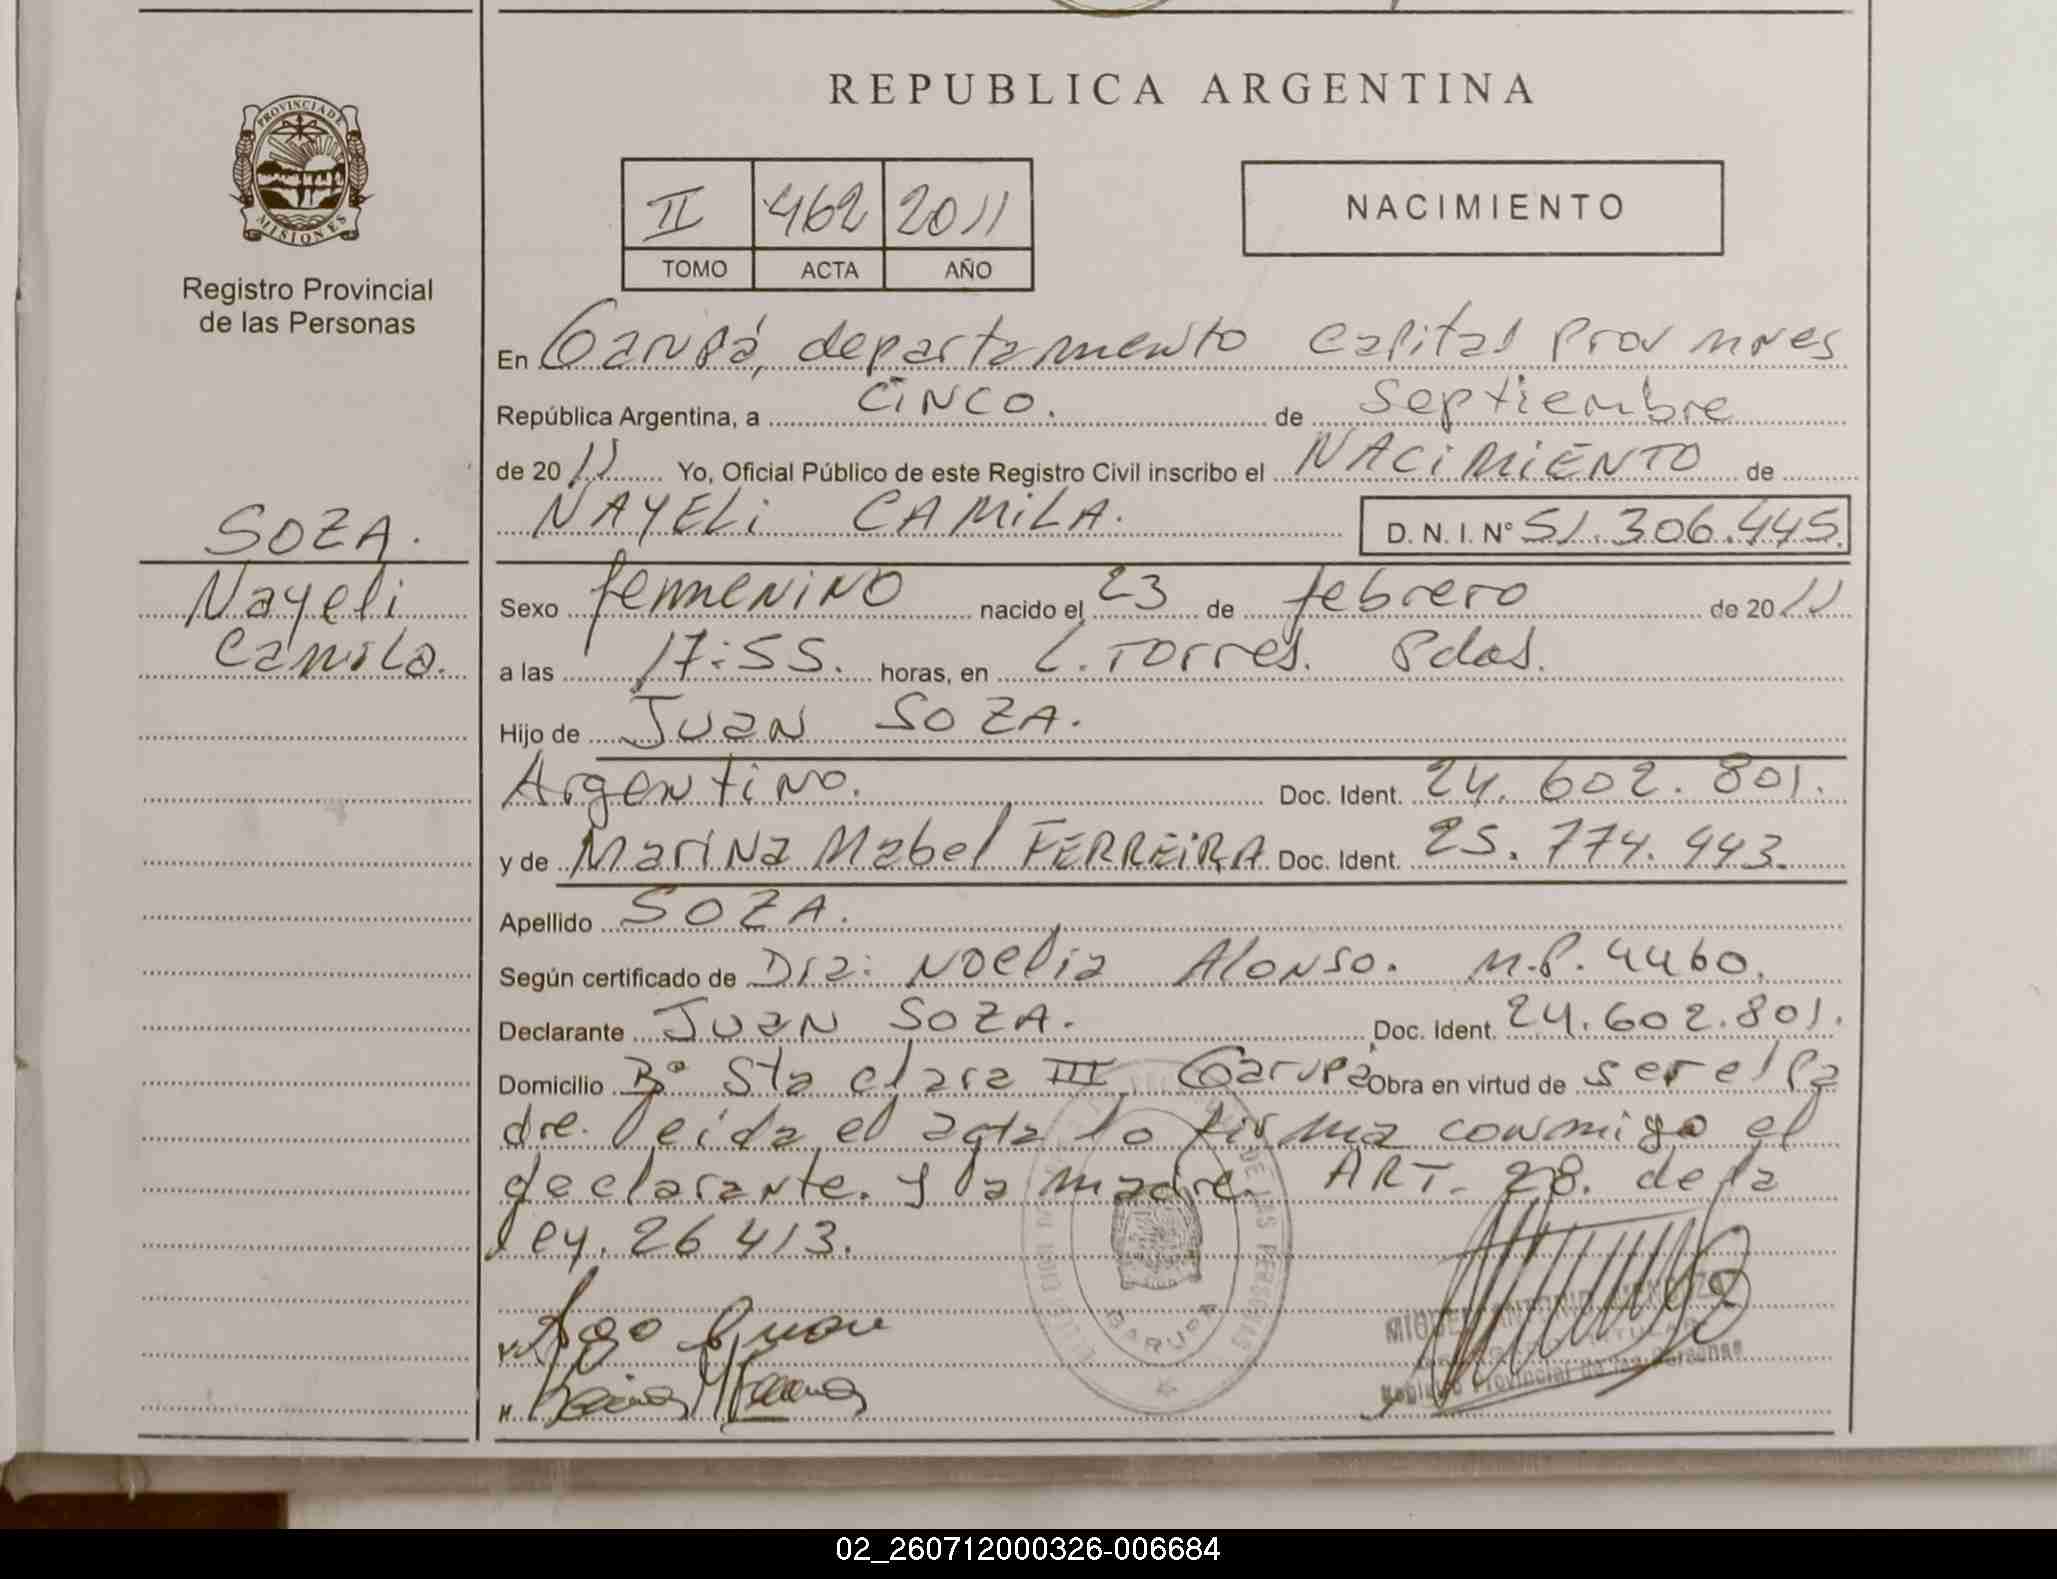 REPUBLICA ARGENTINA
PROVINCIA DE MISIONES
Registro Provincial
de las Personas
II 462 2011
TOMO ACTA AÑO
NACIMIENTO
En Garupá, departamento Capital Prov mnes
República Argentina, a CINCO. de septiembre
de 2011 Yo, Oficial Público de este Registro Civil inscribo el NACIMIENTO de
NAYELI CAMILA. D. N. I. Nº 51.306.445.
SOZA.
Nayeli
Camila.
Sexo femenino nacido el 23 de febrero de 2011
a las 17:55. horas, en L. Torres. Pdas.
Hijo de Juan SOZA.
Argentino. Doc. Ident. 24.602.801.
y de Marina Mabel FERREIRA Doc. Ident. 25.774.443.
Apellido SOZA.
Según certificado de Dra: Noelia Alonso. M.P. 4460.
Declarante Juan SOZA. Doc. Ident. 24.602.801.
Domicilio Bº Sta clara III Garupá Obra en virtud de ser el pa
dre. leida el acta lo firma conmigo el
declarante. y la madre. ART. 28. de la
ley. 26413.
DE LAS PERSONAS
GARUPA
MIGUEL ANTONIO MENDOZA
TITULAR
Registro Provincial de las Personas
02_260712000326-006684